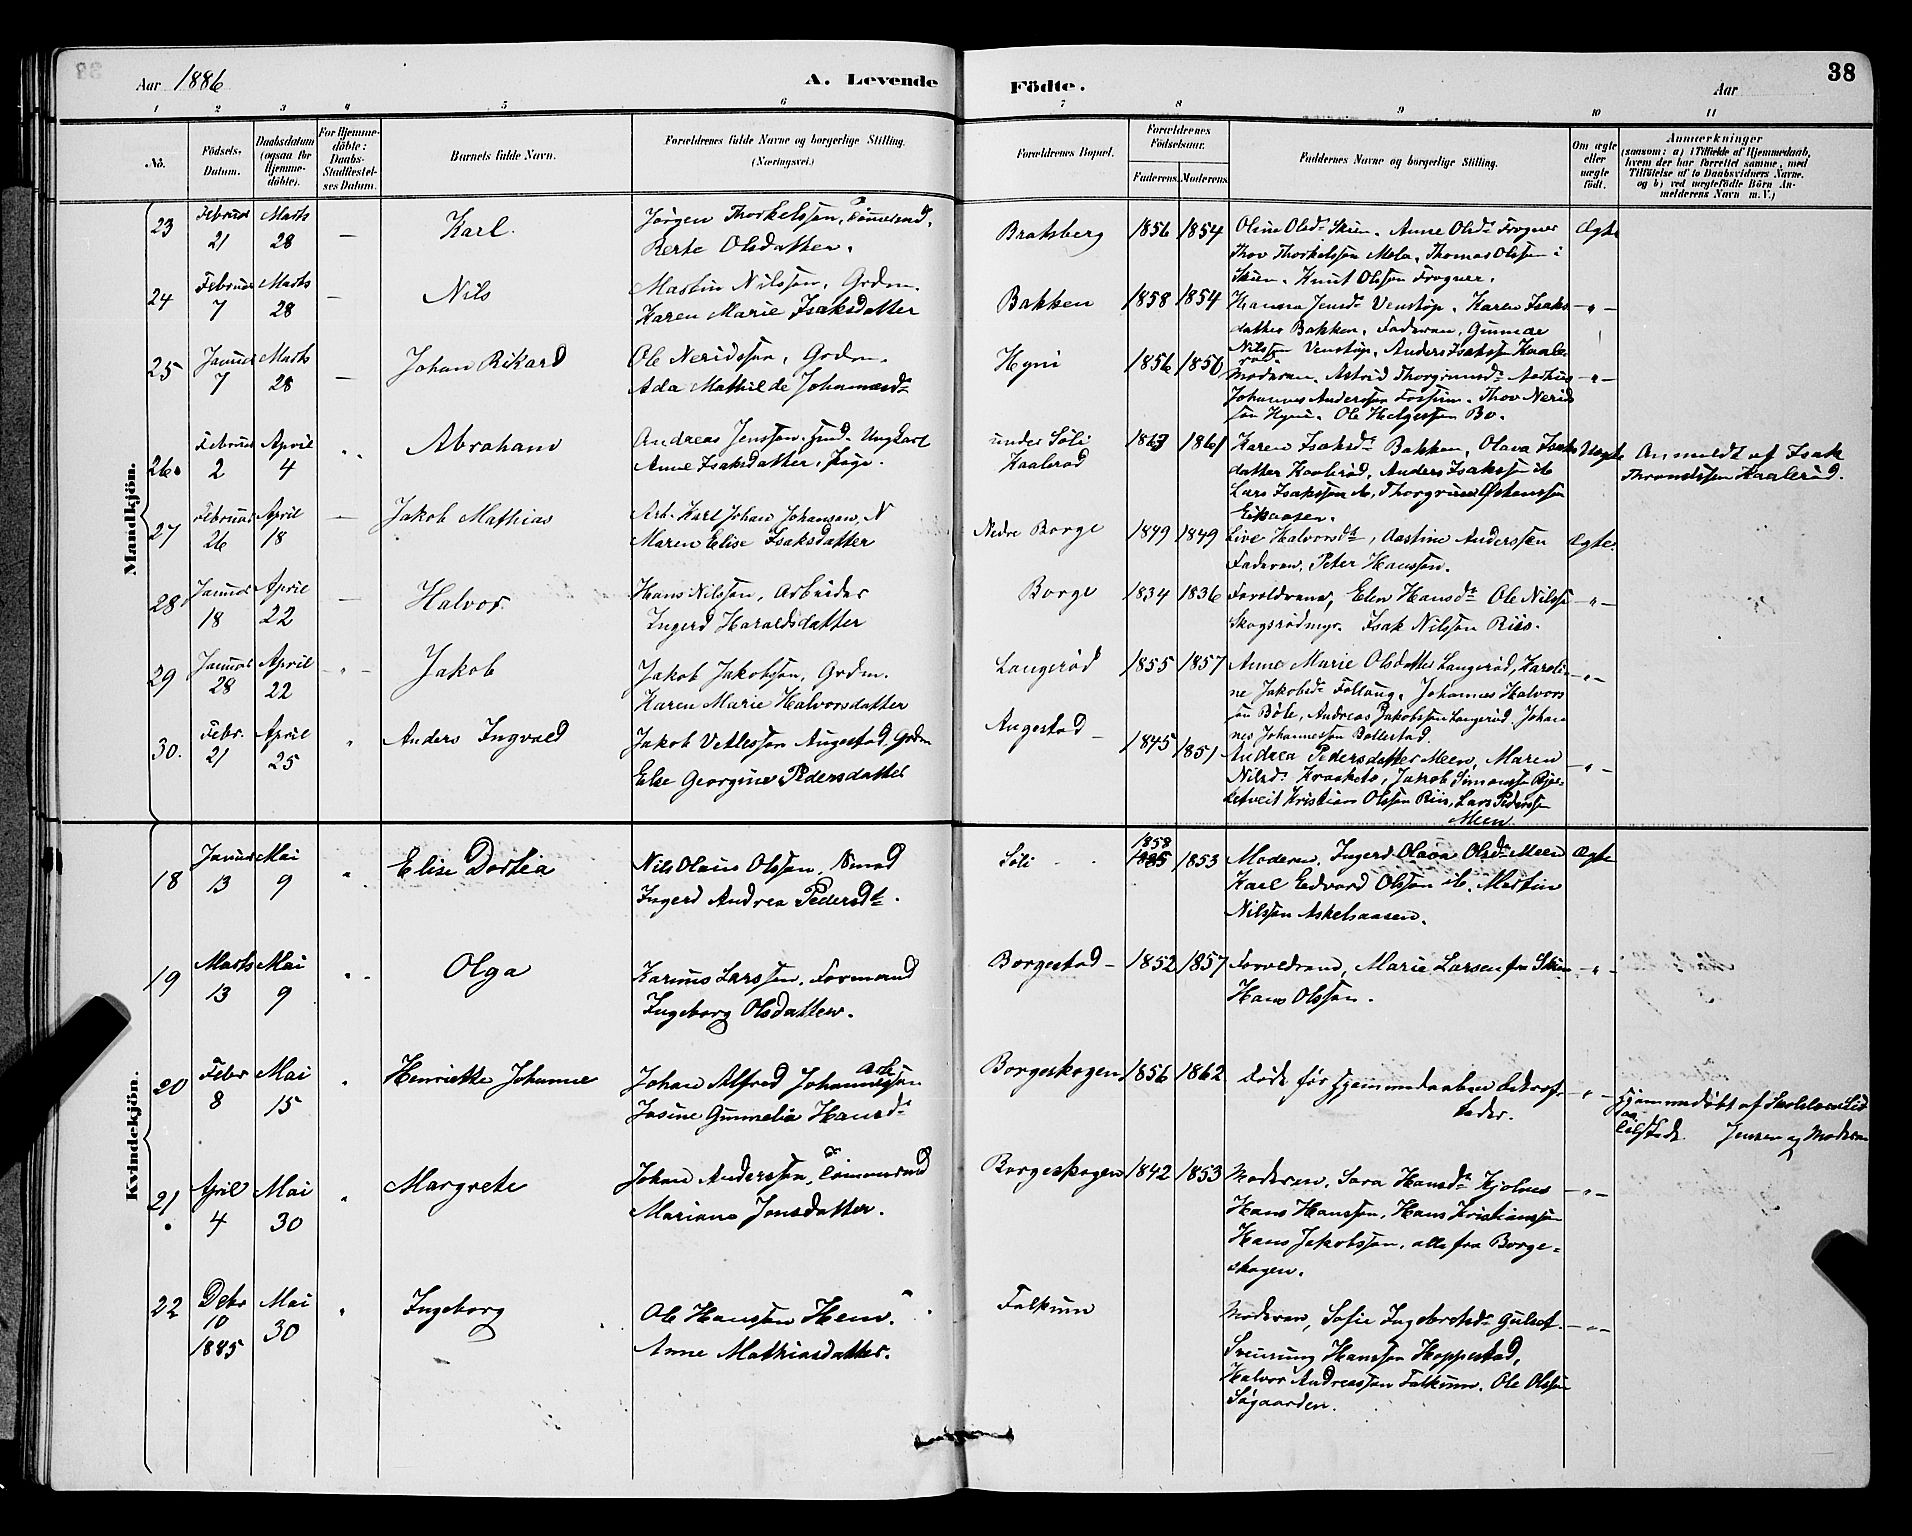 38
Aar 1886
A. Levende
Födte.
Aar
1 2 3 4 5 6 7 8 9 10 11
No.
Födsels-Datum.
Daabsdatum (ogsaa for Hjemme-döbte).
For Hjemme-döbte: Daabs-Stadfæstel-ses Datum.
Barnets fulde Navn.
Forældrenes fulde Navne og borgerlige Stilling.
(Næringsvei.)
Forældrenes Bopæl.
Forældrenes Födselsaar.
Faderens. Moderens.
Faddernes Navne og borgerlige Stilling.
Om ægte eller uægte födt.
Anmærkninger
(saasom: a) i Tilfælde af Hjemmedaab,
hvem der har forrettet samme, med
Tilföielse af to Daabsvidners Navne.
og b) ved uægtefödte Börn An-
melderens Navn m. V.)
Mandkjön.
23 Februar 21 Marts 28 — Karl. Jørgen Thorkelssen, Tømmermd.
Berte Olsdatter.
Bratsberg 1856 1854 Oline Olsdr Skien. Anne Olsdr Frogner
Thov Thorkelssen Mela. Thomas Olssen i
Skien. Knut Olssen Frogner.
Ægte
24 Februar 7 Marts 28 — Nils Martin Nilssen, Grdm.
Karen Marie Isaksdatter
Bakken 1858 1854 Hanna Jensdr Venstøp. Karen Isaks
datter Bakken. Faderen, Gunnar
Nilssen Venstøp. Anders Isakssen Kaale
rød.
—"—
25 Januar 7 Marts 28 — Johan Rikard Ole Neridssen, Grdm.
Ada Mathilde Johannesdr
Hyni 1856 1856 Moderen. Astrid Thorgrimsdr Aarhus
Johannes Anderssen Fossum. Thov Nerids
sen Hyni. Ole Helgessen Bø.
—"—
26. Februar 2 April 4 " Abraham Andreas Jenssen. Ungkarl
Anne Isaksdatter, Pige.
under Søli
Kaalerød
1863 1861 Karen Isaksdr Bakken, Olava Isaks
datter Kaalerød, Anders Isakssen ib
Lars Isakssen ib, Thorgrim Østenssen
Eikaasen.
Uægte Anmeldt af Isak
Throndssen Kaalerød.
27 Februar 26 April 18 — Jakob Mathias Arb. Karl Johan Johansen, N
Maren Elise Isaksdatter
Nedre Borge 1849 1849 Live Halvorsdr, Aastine Anderssen
Faderen. Peter Hanssen.
Ægte.
28 Januar 18 April 22 — Halvor. Hans Nilssen, Arbeider
Ingerd Haraldsdatter
Borge 1834 1836 Forældrene, Elen Hansdr Ole Nilssen
Skogsrødmyr. Isak Nilssen Riis.
—"—
29 Januar 28 April 22 —"— Jakob Jakob Jakobssen, Grdm.
Karen Marie Halvorsdatter
Langerød 1855 1857 Anne Marie Olsdatter Langerød, Karoli-
ne Jakobsdr Follaug. Johannes Halvors
sen Bøle, Andreas Jakobssen Langerød. Johan
nes Johannessen Bollestad.
—"—
30. Febr. 21 April 25 " Anders Ingvald Jakob Vetlessen Augestad, Grdm
Else Georgine Pedersdatter
Augestad 1845 1851 Andrea Pedersdatter Meen, Maren
Nilsdr Kraaketo, Jakob Simonssen Bjer-
ketveit Kristian Olssen Riis, Lars Pederssen
Meen.
—"—
Kvindekjön.
18 Januar 13 Mai 9 " Elise Dortea Nils Olaus Olssen, Smed
Ingerd Andrea Pedersdr.
Søli 1858 1853 Moderen. Ingerd Olava Olsdr Meen
Karl Edvard Olssen ib. Martin
Nilssen Askelsaasen.
Ægte
19 Marts 13 Mai 9 " Olga Karinus Larssen. Formand
Ingeborg Olsdatter.
Borgestad 1852 1857 Forældrene, Marie Larsen fra Skien
Hans Olssen.
—"—
20 Febr 8 Mai 15 " Henriette Johanne Johan Alfred Johannessen Arb
Josine Gunnelia Hansdr
Borgeskogen 1856 1862 Døde før Hjemmedaaben bekræf-
tedes.
—"— Hjemmedøbt af
Jensen og Moderen
21 April 4 Mai 30 " Margrete Johan Anderssen, Tømmermd
Mariane Jensdatter.
Borgeskogen 1842 1853 Moderen. Sara Hansdr Kjølnes
Hans Hanssen, Hans Kristianssen
Hans Jakobssen, alle fra Borge-
skogen.
—"—
22 Debr 10 1885 Mai 30 " Ingeborg Ole Hanssen Hem.
Anne Mathiasdatter.
Falkum Moderen, Sofie Ingebretsdr Gulset.
Sveinung Hanssen Hoppestad,
Halvor Andreassen Falkum. Ole Olssen
Søgaarden.
—"—